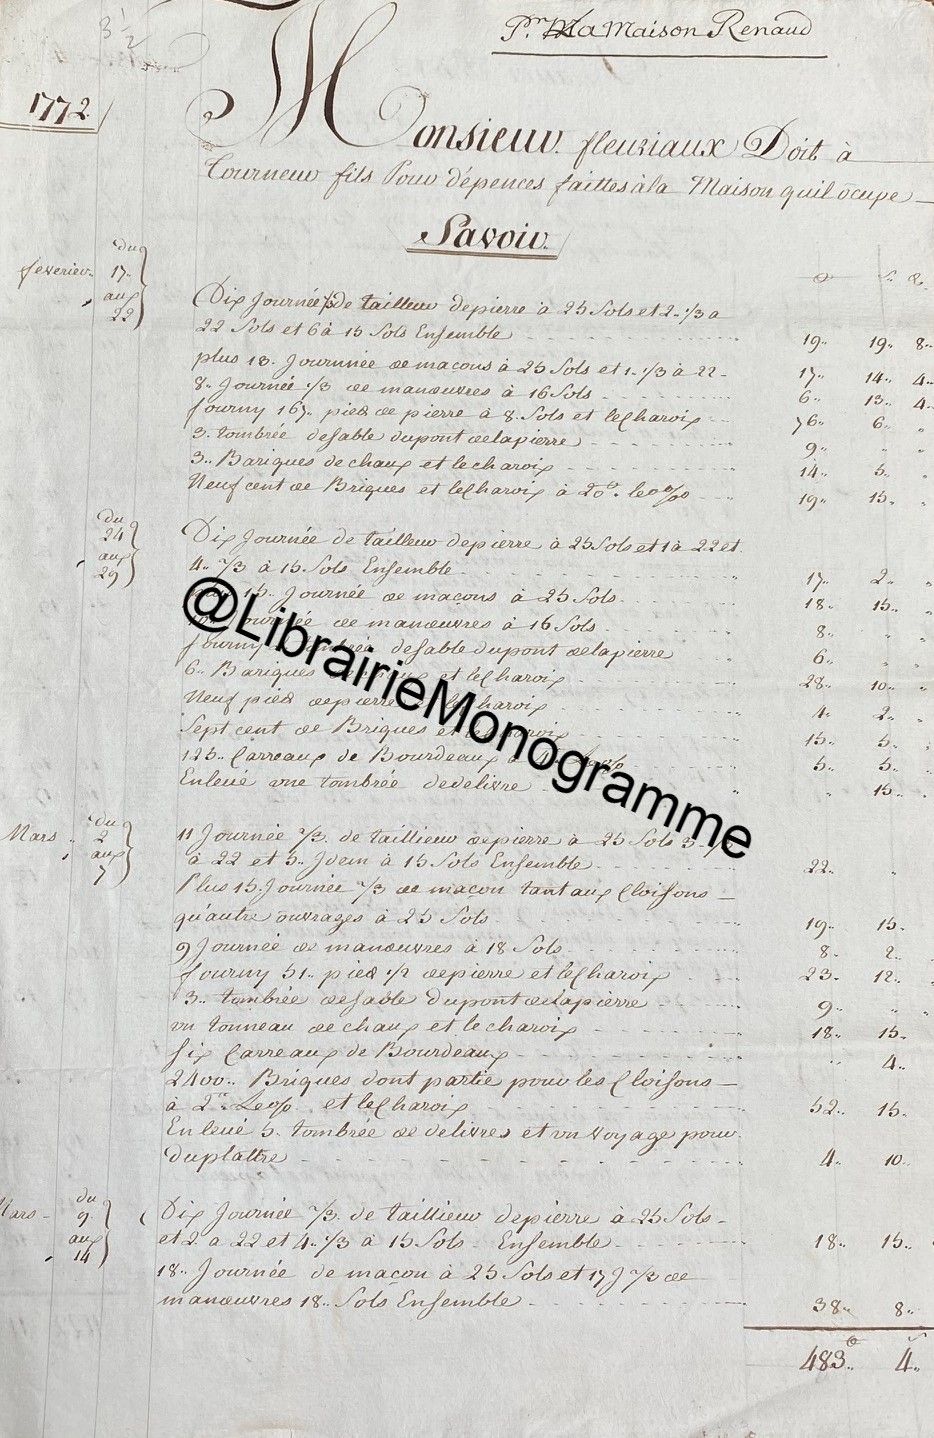 3 1/2
P.r Ma Maison Renaud
1772.
Monsieur fleuriaux Doit à
Tourneur fils Pour dépences faittes à la Maison quil ocupe
Savoir.
feverier du 17 aux 22
Dix Journée de tailleur de pierre à 25 Sols et 2 1/3 a
22 Sols et 6 à 15 Sols Ensemble 19 19 8
plus 13 Journnée de maçons à 25 Sols et 1 1/3 à 22 17 14 4
8 Journée 1/3 de manœuvres à 16 Sols 6 13 4
fourny 167 pied de pierre à 8 Sols et le Charoix 76 6
3 tombrée de sable du pont de la pierre 9
3 Bariques de chaux et le charoix 14 5
Neuf cent de Briques et le Charoix à le % 19 15
du 24 aux 29
Dix Journée de tailleur de pierre à 25 Sols et 1 à 22 et
4 2/3 à 15 Sols Ensemble 17 2
15 Journée de maçons à 25 Sols 18 15
de manœuvres à 16 Sols 8
fourny de sable du pont de la pierre 6
6 Bariques et le Charoix 28 10
Neuf pied de pierre le Charoix 4 2
Sept cent de Briques et 15 5
125 Carreaux de Bourdeaux à 5 5
Enlevé une tombrée de delivre 15
Mars du 2 aux 7
11 Journée 2/3 de taillieur de pierre à 25 Sols 3
à 22 et 5 Jdem à 15 Sols Ensemble 22
Plus 15 Journée 2/3 de maçon tant aux Cloisons
qu'autre ouvrages à 25 Sols 19 15
9 Journée de manœuvres à 18 Sols 8 2
fourny 51 pied 1/2 de pierre et le Charoix 23 12
3 tombrée de sable du pont de la pierre 9
un tonneau de chaux et le charoix 18 15
Six Carreaux de Bourdeaux 4
2400 Briques dont partie pour les Cloisons
à 2 Le % et le Charoix 52 15
Enlevé 5 tombrée de delivres et un voyage pour
du plattre 4 10
Mars du 9 aux 14
Dix Journée 2/3 de taillieur de pierre à 25 Sols
et 2 a 22 et 4 1/3 à 15 Sols Ensemble 18 15
18 Journée de maçon à 25 Sols et 17 J 2/3 de
manœuvres 18 Sols Ensemble 38 8
483 4
@LibrairieMonogramme